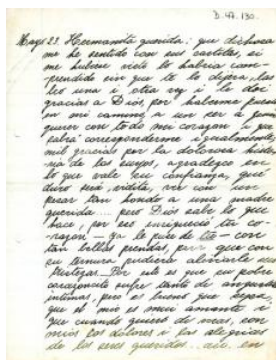 D.47.130.
Mayo 23. Hermanita querida: que dichosa
me he sentido con sus cartitas, si
me hubiera visto lo habría com-
prendido sin que te lo dijera, las
leo una i otra vez i le doi
gracias a Dios, por haberme puesto
en mi camino a un ser a quien
querer con todo mi corazon i que
sabrá corresponderme igualmente,
mil gracias por la dolorosa histo-
ria de los suyos, agradezco en
lo que vale su confianza, que
duro será, vidita, vivir con un
pesar tan hondo a una madre
querida... pero Dios sabe lo que
hace, por eso
razon — ya lo
tan bellas prendas, para que con
su ternura pudiera aliviarle sus
tristezas. Por esto es que su pobre
corazoncito sufre tanto de amarguras
intimas, pero es bueno que sepa
que el mio es mui amante i
que cuando quiero de veras, son
mios los dolores i las alegrias
de los seres queridos... aio. en